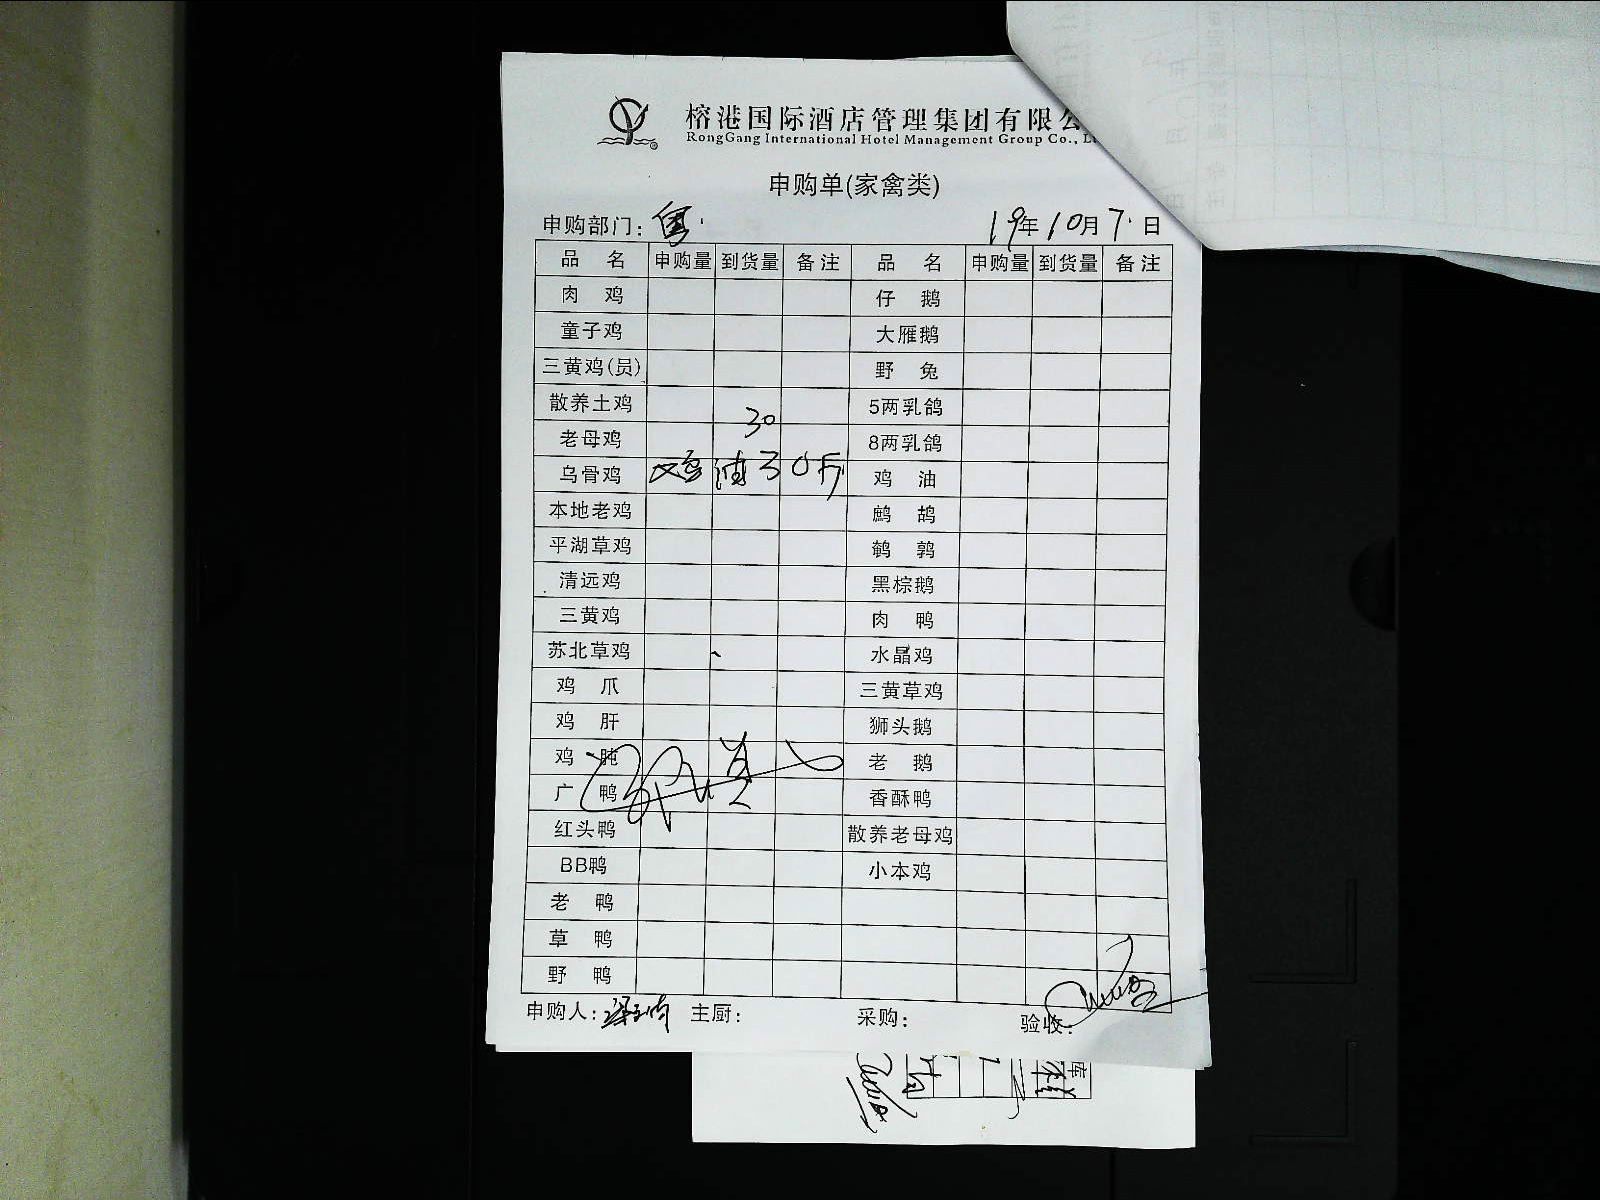 榕港国际酒店管理集团有限公
RongGang International Hotel Management Group Co., L
申购单(家禽类)
申购部门: 粤 19年10月7日
品 名 申购量 到货量 备注 品 名 申购量 到货量 备注
肉 鸡 仔 鹅
童子鸡 大雁鹅
三黄鸡(员) 野 兔
散养土鸡 5两乳鸽
30
老母鸡 8两乳鸽
乌骨鸡 鸡油30斤 鸡 油
本地老鸡 鹧 鸪
平湖草鸡 鹌 鹑
清远鸡 黑棕鹅
三黄鸡 肉 鸭
苏北草鸡 水晶鸡
鸡 爪 三黄草鸡
鸡 肝 狮头鹅
鸡 肫 老 鹅
广 鸭 香酥鸭
红头鸭 散养老母鸡
BB鸭 小本鸡
老 鸭
草 鸭
野 鸭
申购人: 主厨: 采购: 验收:
库